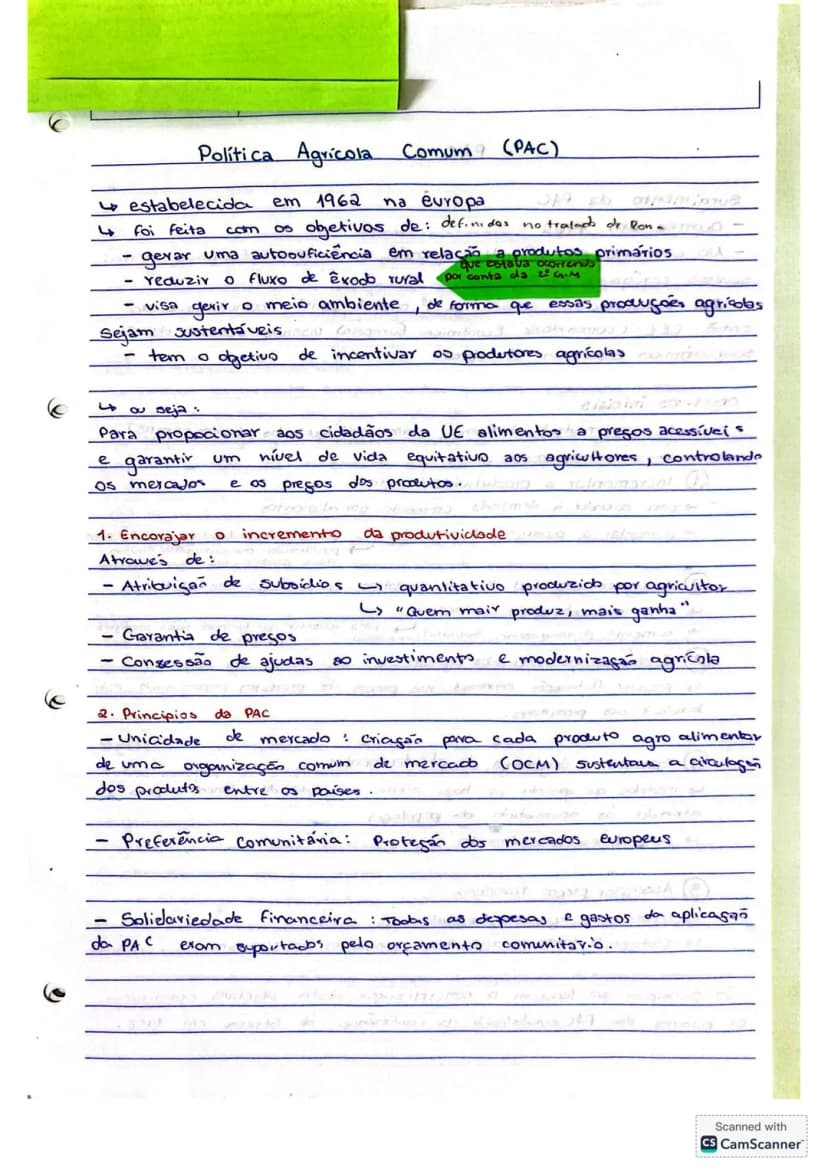 Política Agrícola Comum (PAC)
↳ estabelecida em 1962 na europa
↳ foi feita com os objetivos de: definidos no tratado de Roma
- gerar uma autosuficiência em relação a produtos primários
- reduzir o fluxo de êxodo rural
que estava ocorrendo
por conta da 2ª G.M
- visa gerir o meio ambiente, de forma que essas produções agrícolas
sejam sustentáveis
- tem o objetivo de incentivar os produtores agrícolas
↳ ou seja:
Para propocionar aos cidadãos da UE alimentos a preços acessíveis
e garantir um nível de vida equitativo aos agricultores, controlando
os mercados e os preços dos produtos.
1. Encorajar o incremento da produtividade
Através de:
- Atribuição de subsídios ↪ quantitativo produzido por agricultor
↳ "Quem mais produz, mais ganha"
- Garantia de preços
- Consessão de ajudas ao investimento e modernização agrícola
2. Princípios da PAC
- Unicidade de mercado: criação para cada produto agro alimentar
de uma organização comum de mercado (OCM) sustentava a circulação
dos produtos entre os países.
- Preferência comunitária: Proteção dos mercados europeus
- Solidariedade financeira: Todas as despesas e gastos da aplicação
da PAC eram suportados pelo orçamento comunitario.
Scanned with
CS CamScanner